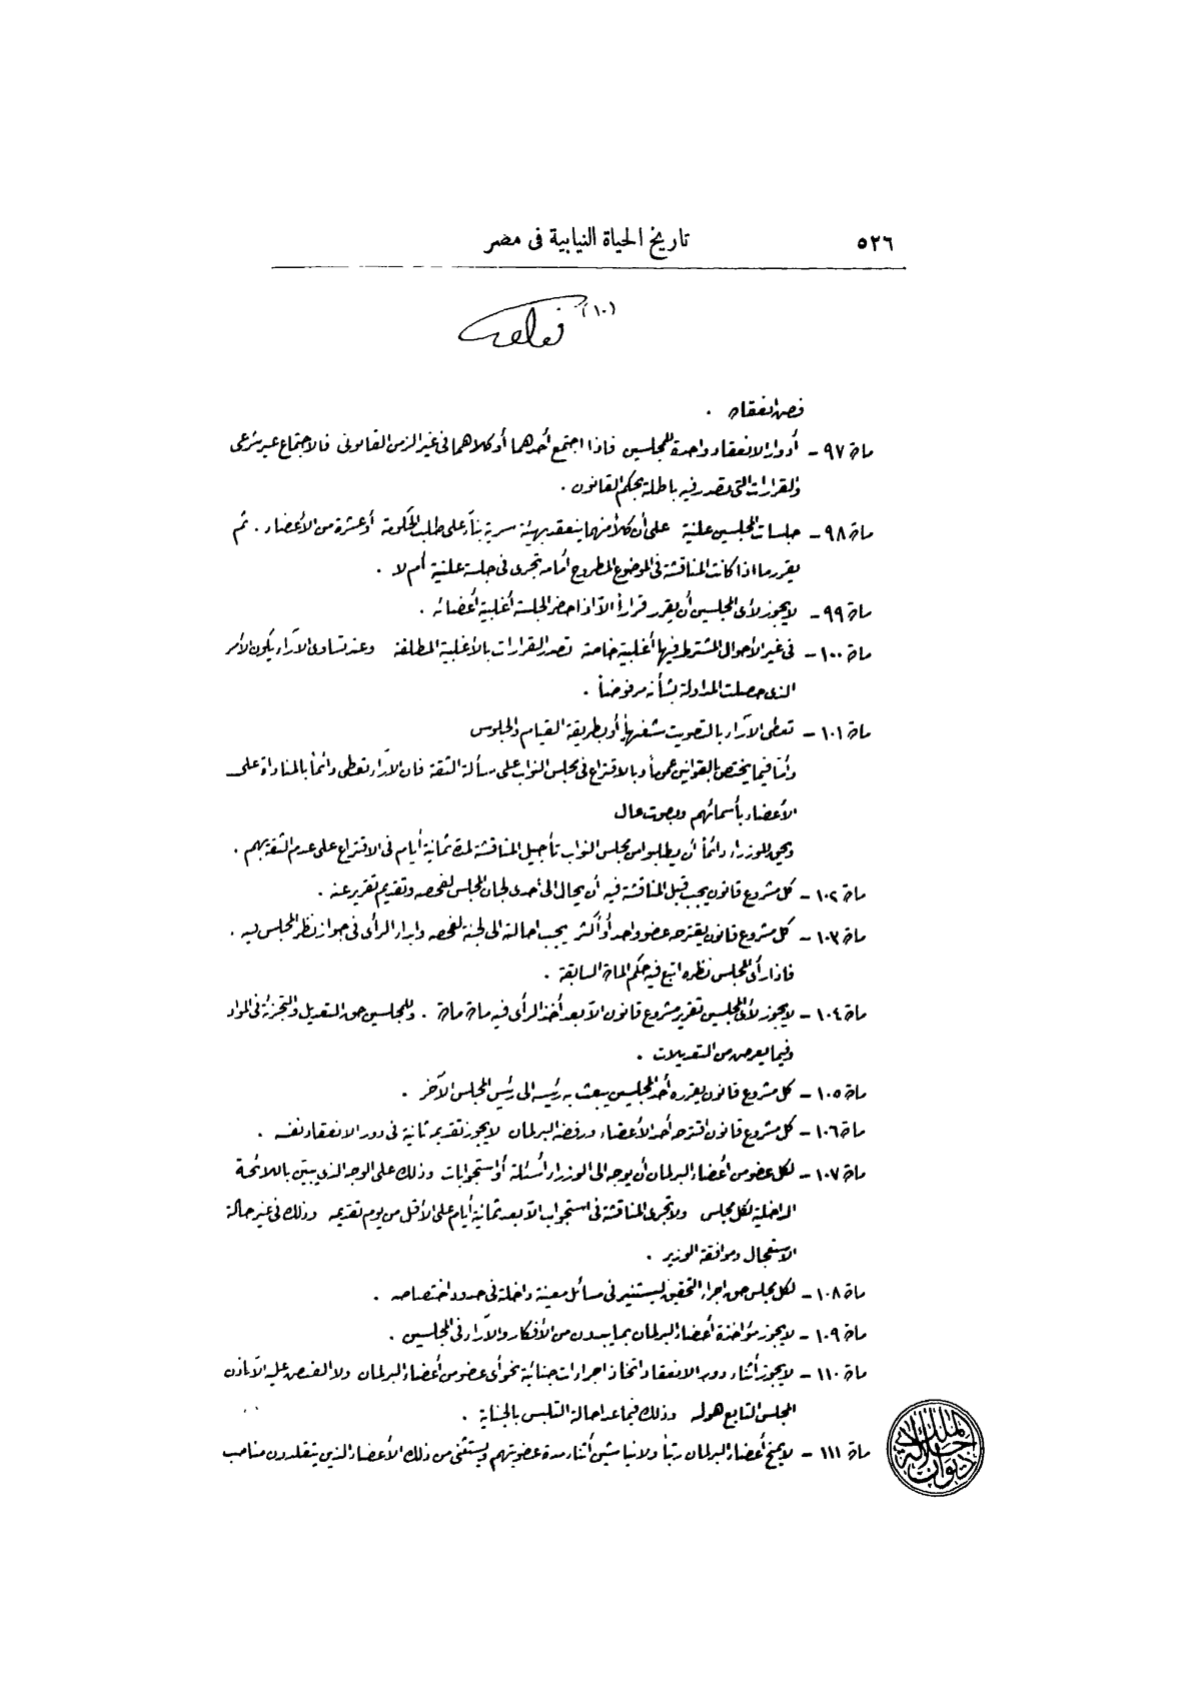 ٥٢٦
تاريخ الحياة النيابية فى مصر
(١٠)
فض انعقاده .
مادة ٩٧ - أدوار الانعقاد واحدة للمجلسين فاذا اجتمع أحدهما أو كلاهما فى غير الزمن القانونى فالاجتماع غير شرعى
والقرارات التى تصدر فيه باطلة بحكم القانون .
مادة ٩٨ - جلسات المجلسين علنية على أن كلا منهما ينعقد بهيئة سرية بناءً على طلب الحكومة أو عشرة من الأعضاء . ثم
يقرر ما اذا كانت المناقشة فى الموضوع المطروح أمامه تجرى فى جلسة علنية أم لا .
مادة ٩٩ - لا يجوز لأى المجلسين أن يقرر قراراً الاّ اذا حضر الجلسة أغلبية أعضائه .
مادة ١٠٠ - فى غير الأحوال المشترط فيها أغلبية خاصة تصدر القرارات بالأغلبية المطلقة وعند تساوى الآراء يكون الأمر
الذى حصلت المداولة بشأنه مرفوضاً .
مادة ١٠١ - تعطى الآراء بالتصويت شفهياً أو بطريقة القيام والجلوس
وأما فيما يختص بالقوانين عموماً وبالاقتراع فى مجلس النواب على مسألة الثقة فان الآراء تعطى دائماً بالمناداة على
الأعضاء بأسمائهم وبصوت عال
ويحق للوزراء دائماً أن يطلبوا من مجلس النواب تأجيل المناقشة لمدة ثمانية أيام فى الاقتراع على عدم الثقة بهم .
مادة ١٠٢ - كل مشروع قانون يجب قبل المناقشة فيه أن يحال الى احدى لجان المجلس لفحصه وتقديم تقرير عنه .
مادة ١٠٣ - كل مشروع قانون يقترحه عضو واحد أو أكثر يجب احالته الى لجنة لفحصه وابداء الرأى فى جواز نظر المجلس فيه .
فاذا رأى المجلس نظره اتبع فيه حكم المادة السابقة .
مادة ١٠٤ - لا يجوز لأى المجلسين تقرير مشروع قانون الاّ بعد أخذ الرأى فيه مادة مادة . وللمجلسين حق التعديل والتجزئة فى المواد
وفيما يعرض من التعديلات .
مادة ١٠٥ - كل مشروع قانون يقرره أحد المجلسين يبعث به رئيسه الى رئيس المجلس الآخر .
مادة ١٠٦ - كل مشروع قانون اقترحه أحد الأعضاء ورفضه البرلمان لا يجوز تقديمه ثانية فى دور الانعقاد نفسه .
مادة ١٠٧ - لكل عضو من أعضاء البرلمان أن يوجه الى الوزراء أسئلة أو استجوابات وذلك على الوجه الذى يبين باللائحة
الداخلية لكل مجلس ولا تجرى المناقشة فى استجواب الاّ بعد ثمانية أيام على الأقل من يوم تقديمه وذلك فى غير حالة
الاستعجال وموافقة الوزير .
مادة ١٠٨ - لكل مجلس حق اجراء التحقيق ليستنير فى مسائل معينة داخلة فى حدود اختصاصه .
مادة ١٠٩ - لا يجوز مؤاخذة أعضاء البرلمان بما يبدون من الأفكار والآراء فى المجلسين .
مادة ١١٠ - لا يجوز أثناء دور الانعقاد اتخاذ اجراءات جنائية نحو أى عضو من أعضاء البرلمان ولا القبض عليه الاّ باذن
المجلس التابع هو له وذلك فيما عدا حالة التلبس بالجناية .
مادة ١١١ - لا يمنح أعضاء البرلمان رتباً ولا نياشين أثناء مدة عضويتهم ويستثنى من ذلك الأعضاء الذين يتقلدون مناصب
ديوان جلالة الملك